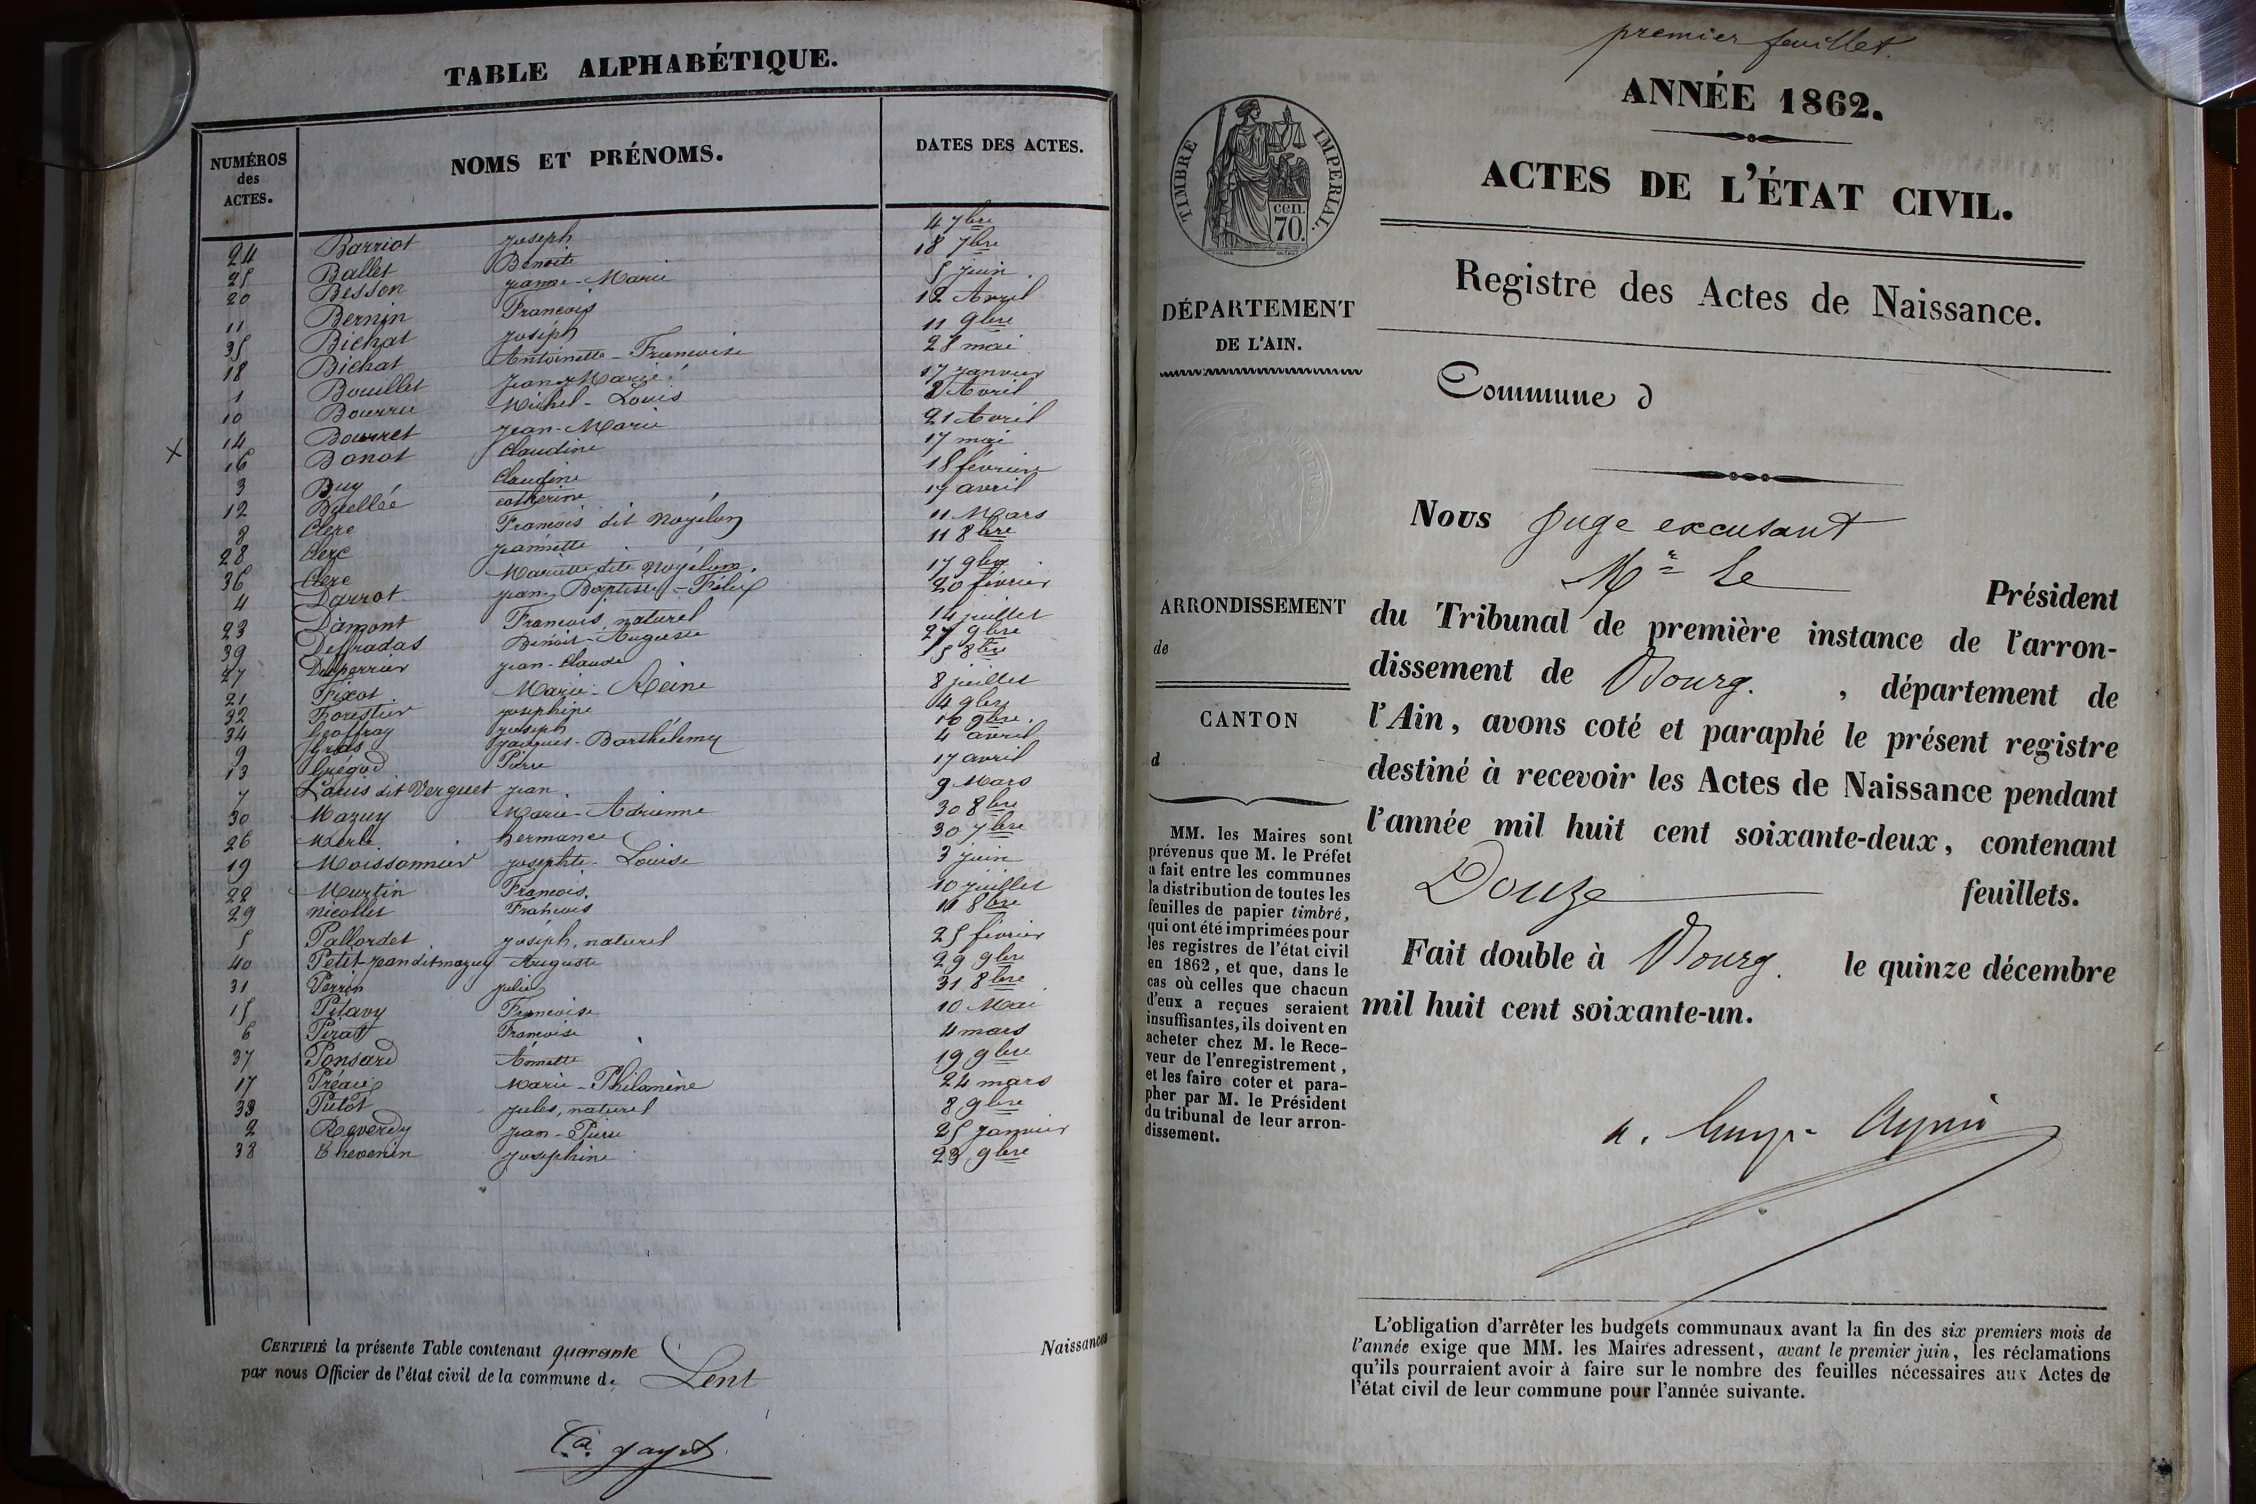 TABLE ALPHABÉTIQUE.
NUMÉROS des ACTES.
NOMS ET PRÉNOMS.
DATES DES ACTES.
24 Barriot Joseph 4 7bre
25 Ballet Benoite 18 7bre
20 Besson Jeanne-Marie 5 juin
11 Bernin François 12 Avril
35 Bichat Joseph 11 9bre
18 Bichat Antoinette-Françoise 28 mai
1 Bouillet Jean-Marie 17 janvier
10 Bourru Michel-Louis 8 Avril
14 Bourret Jean-Marie 21 Avril
X 16 Bonot Claudine 17 mai
3 Buy Claudine 18 février
12 Buellée catherine 17 avril
8 Clerc François dit Noyélon 11 Mars
28 Clerc jeannette 11 8bre
36 Clerc Mariette dite Noyélon. 17 9bre
4 Darrot jean-Baptiste-Félix 20 février
23 Damont François, naturel 14 juillet
39 Deffradas Benoit-Auguste 27 9bre
27 Dupperrier jean-Claude 5 8bre
21 Fixot Marie-Reine 8 juillet
32 Forestier josephine 04 9bre
34 Geoffray joseph 10 9bre.
9 Gras Jacques-Barthélemy 4 avril
13 Grégud Pierre 17 avril
7 Larus dit Verguet jean 9 Mars
30 Mazuy Marie-Adrienne 30 8bre
26 Merle hermance 30 7bre
19 Moissonnier josephte-Louise 3 juin
22 Murtin François. 10 juillet
29 Nicollet François 11 8bre
5 Pallordet joseph, naturel 25 février
40 Petit-jean dit mazuy Auguste 29 9bre
31 Perrin julie 31 8bre
15 Pitavy Françoise 10 Mai
6 Pirat Françoise 4 mars
37 Ponsard Annette 19 9bre
17 Préaux Marie-Philomène 24 mars
33 Putôt jules, naturel 8 9bre
2 Reverdy jean-Pierre 25 janvier
38 Thevenin josephine 23 9bre
CERTIFIÉ la présente Table contenant quarante Naissances
par nous Officier de l'état civil de la commune de Lent
premier feuillet.
ANNÉE 1862.
ACTES DE L'ÉTAT CIVIL.
TIMBRE IMPERIAL.
cen. 70.
Registre des Actes de Naissance.
DÉPARTEMENT
DE L'AIN.
Commune d
Nous juge excusant
Mr Le Président
ARRONDISSEMENT
de
CANTON
d
du Tribunal de première instance de l'arron-
dissement de Bourg. , département de
l'Ain, avons coté et paraphé le présent registre
destiné à recevoir les Actes de Naissance pendant
l'année mil huit cent soixante-deux, contenant
Douze feuillets.
Fait double à Bourg. le quinze décembre
mil huit cent soixante-un.
MM. les Maires sont
prévenus que M. le Préfet
a fait entre les communes
la distribution de toutes les
feuilles de papier timbré,
qui ont été imprimées pour
les registres de l'état civil
en 1862, et que, dans le
cas où celles que chacun
d'eux a reçues seraient
insuffisantes, ils doivent en
acheter chez M. le Rece-
veur de l'enregistrement,
et les faire coter et para-
pher par M. le Président
du tribunal de leur arron-
dissement.
L'obligation d'arrêter les budgets communaux avant la fin des six premiers mois de
l'année exige que MM. les Maires adressent, avant le premier juin, les réclamations
qu'ils pourraient avoir à faire sur le nombre des feuilles nécessaires aux Actes de
l'état civil de leur commune pour l'année suivante.